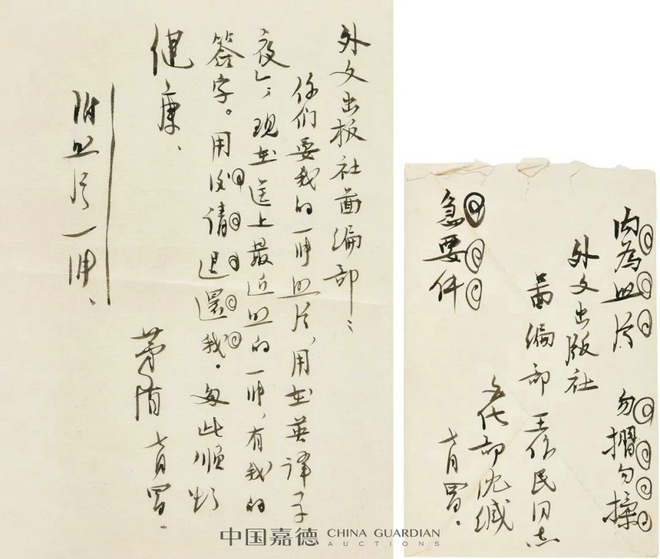 外文出版社啚编部:
你们要我的一帧照片,用在英译子
夜」,现在送上最近照的一帧,有我的
签字。用后请退还我。匆此顺颂
健康、
茅盾 月四日.
附照片一帧、
内为照片 勿摺勿揉
外文出版社
啚编部 王作民同志
文化部沈缄
急要件 月四日.
中国嘉德 CHINA GUARDIAN
AUCTIONS